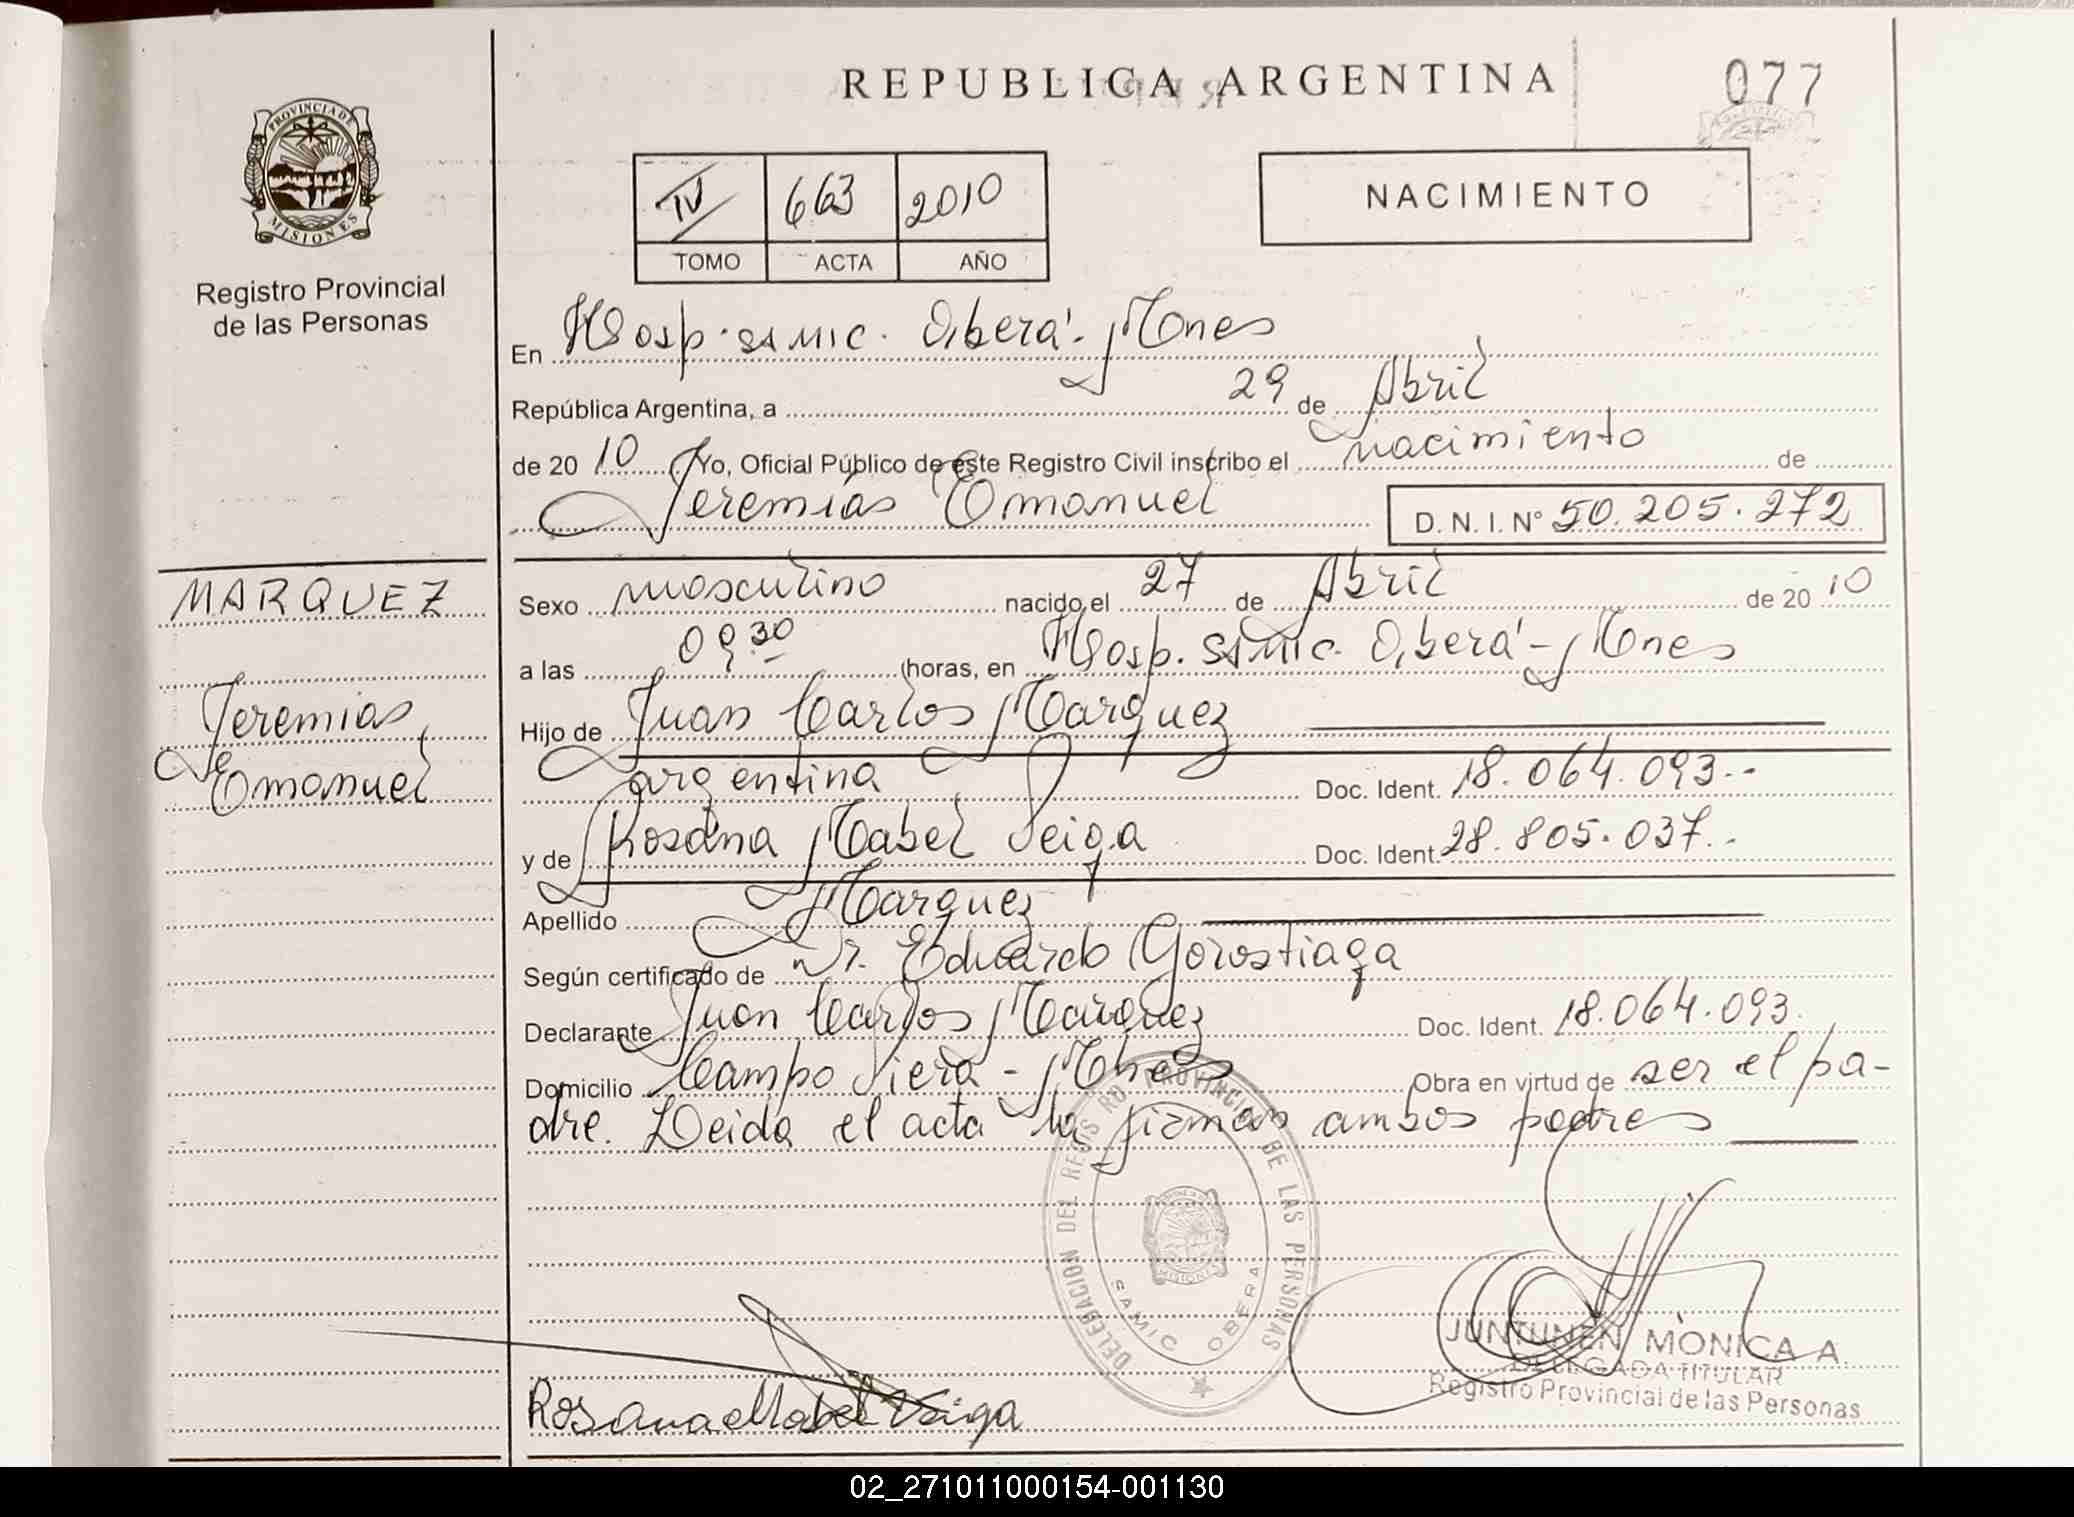 REPUBLICA ARGENTINA
077
PROVINCIA DE
MISIONES
Registro Provincial
de las Personas
IV 663 2010
TOMO ACTA AÑO
NACIMIENTO
En Hosp. SAMIC. Oberá - Mnes
República Argentina, a 29 de Abril
de 20 10 Yo, Oficial Público de este Registro Civil inscribo el nacimiento de
Jeremias Emanuel D. N. I. N° 50.205.272
MARQUEZ
Jeremias
Emanuel
Sexo masculino nacido el 27 de Abril de 20 10
a las 09.30 horas, en Hosp. SAMIC. Oberá - Mnes
Hijo de Juan Carlos Marquez
argentina Doc. Ident. 18.064.093.-
y de Rosana Mabel Veiga Doc. Ident. 28.805.037.-
Apellido Marquez
Según certificado de Dr. Eduardo Gorostiaga
Declarante Juan Carlos Marquez Doc. Ident. 18.064.093.
Domicilio Campo Viera - Mnes Obra en virtud de ser el pa-
dre. Leida el acta la firman ambos padres
DELEGACION DEL REGISTRO PROVINCIAL DE LAS PERSONAS
MISIONES
SAMIC OBERA
Rosana Mabel Veiga
JUNTUNEN MONICA A.
DELEGADA TITULAR
Registro Provincial de las Personas
02_271011000154-001130